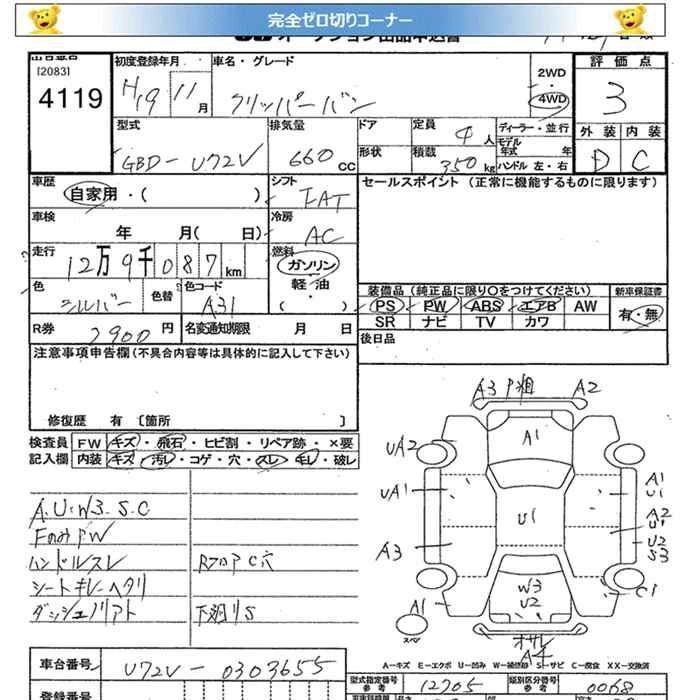 完全ゼロ切りコーナー
出品番号
[2083]
4119
初度登録年月
H19 11月
車名・グレード
クリッパーバン
2WD
・
4WD
評価点
3
外装 内装
D C
型式
GBD-U72V
排気量
660cc
ドア
形状
定員
4人
積載
350kg
ディーラー・並行
モデル
年式 年
ハンドル 左・右
車歴
自家用・( )
シフト
FAT
車検
年 月( 日)
冷房
AC
走行
12万9千087km
燃料
ガソリン
軽・油
( ・ )
色
シルバー
色替
色コード
A31
R券
2900円
名変通知期限 月 日
セールスポイント(正常に機能するものに限ります)
装備品(純正品に限り○をつけてください)
PS PW ABS エアB AW
SR ナビ TV カワ
新車保証書
有・無
後日品
注意事項申告欄(不具合内容等は具体的に記入して下さい)
修復歴 有 〔箇所 〕
検査員 FW キズ・飛石・ヒビ割・リペア跡・×要
記入欄 内装 キズ・汚レ・コゲ・穴・スレ・キレ・破レ
A.U.W3.S.C
FのみPW
ハンドルスレ
シートキレヘタリ
ダッシュリアト
RフロアC穴
下廻りS
A3 P粗 A2
A1
UA2
UA1
U1
A1
U1
A2
U1
U2
S3
A3
W3
U2
C1
A1
スペア
オサレ
A4
A-キズ E-エクボ U-凹み W-補修跡 S-サビ C-腐食 XX-交換済
車台番号
U72V-0303655
型式指定番号
参考
12705
類別区分番号
参考
0068
登録番号